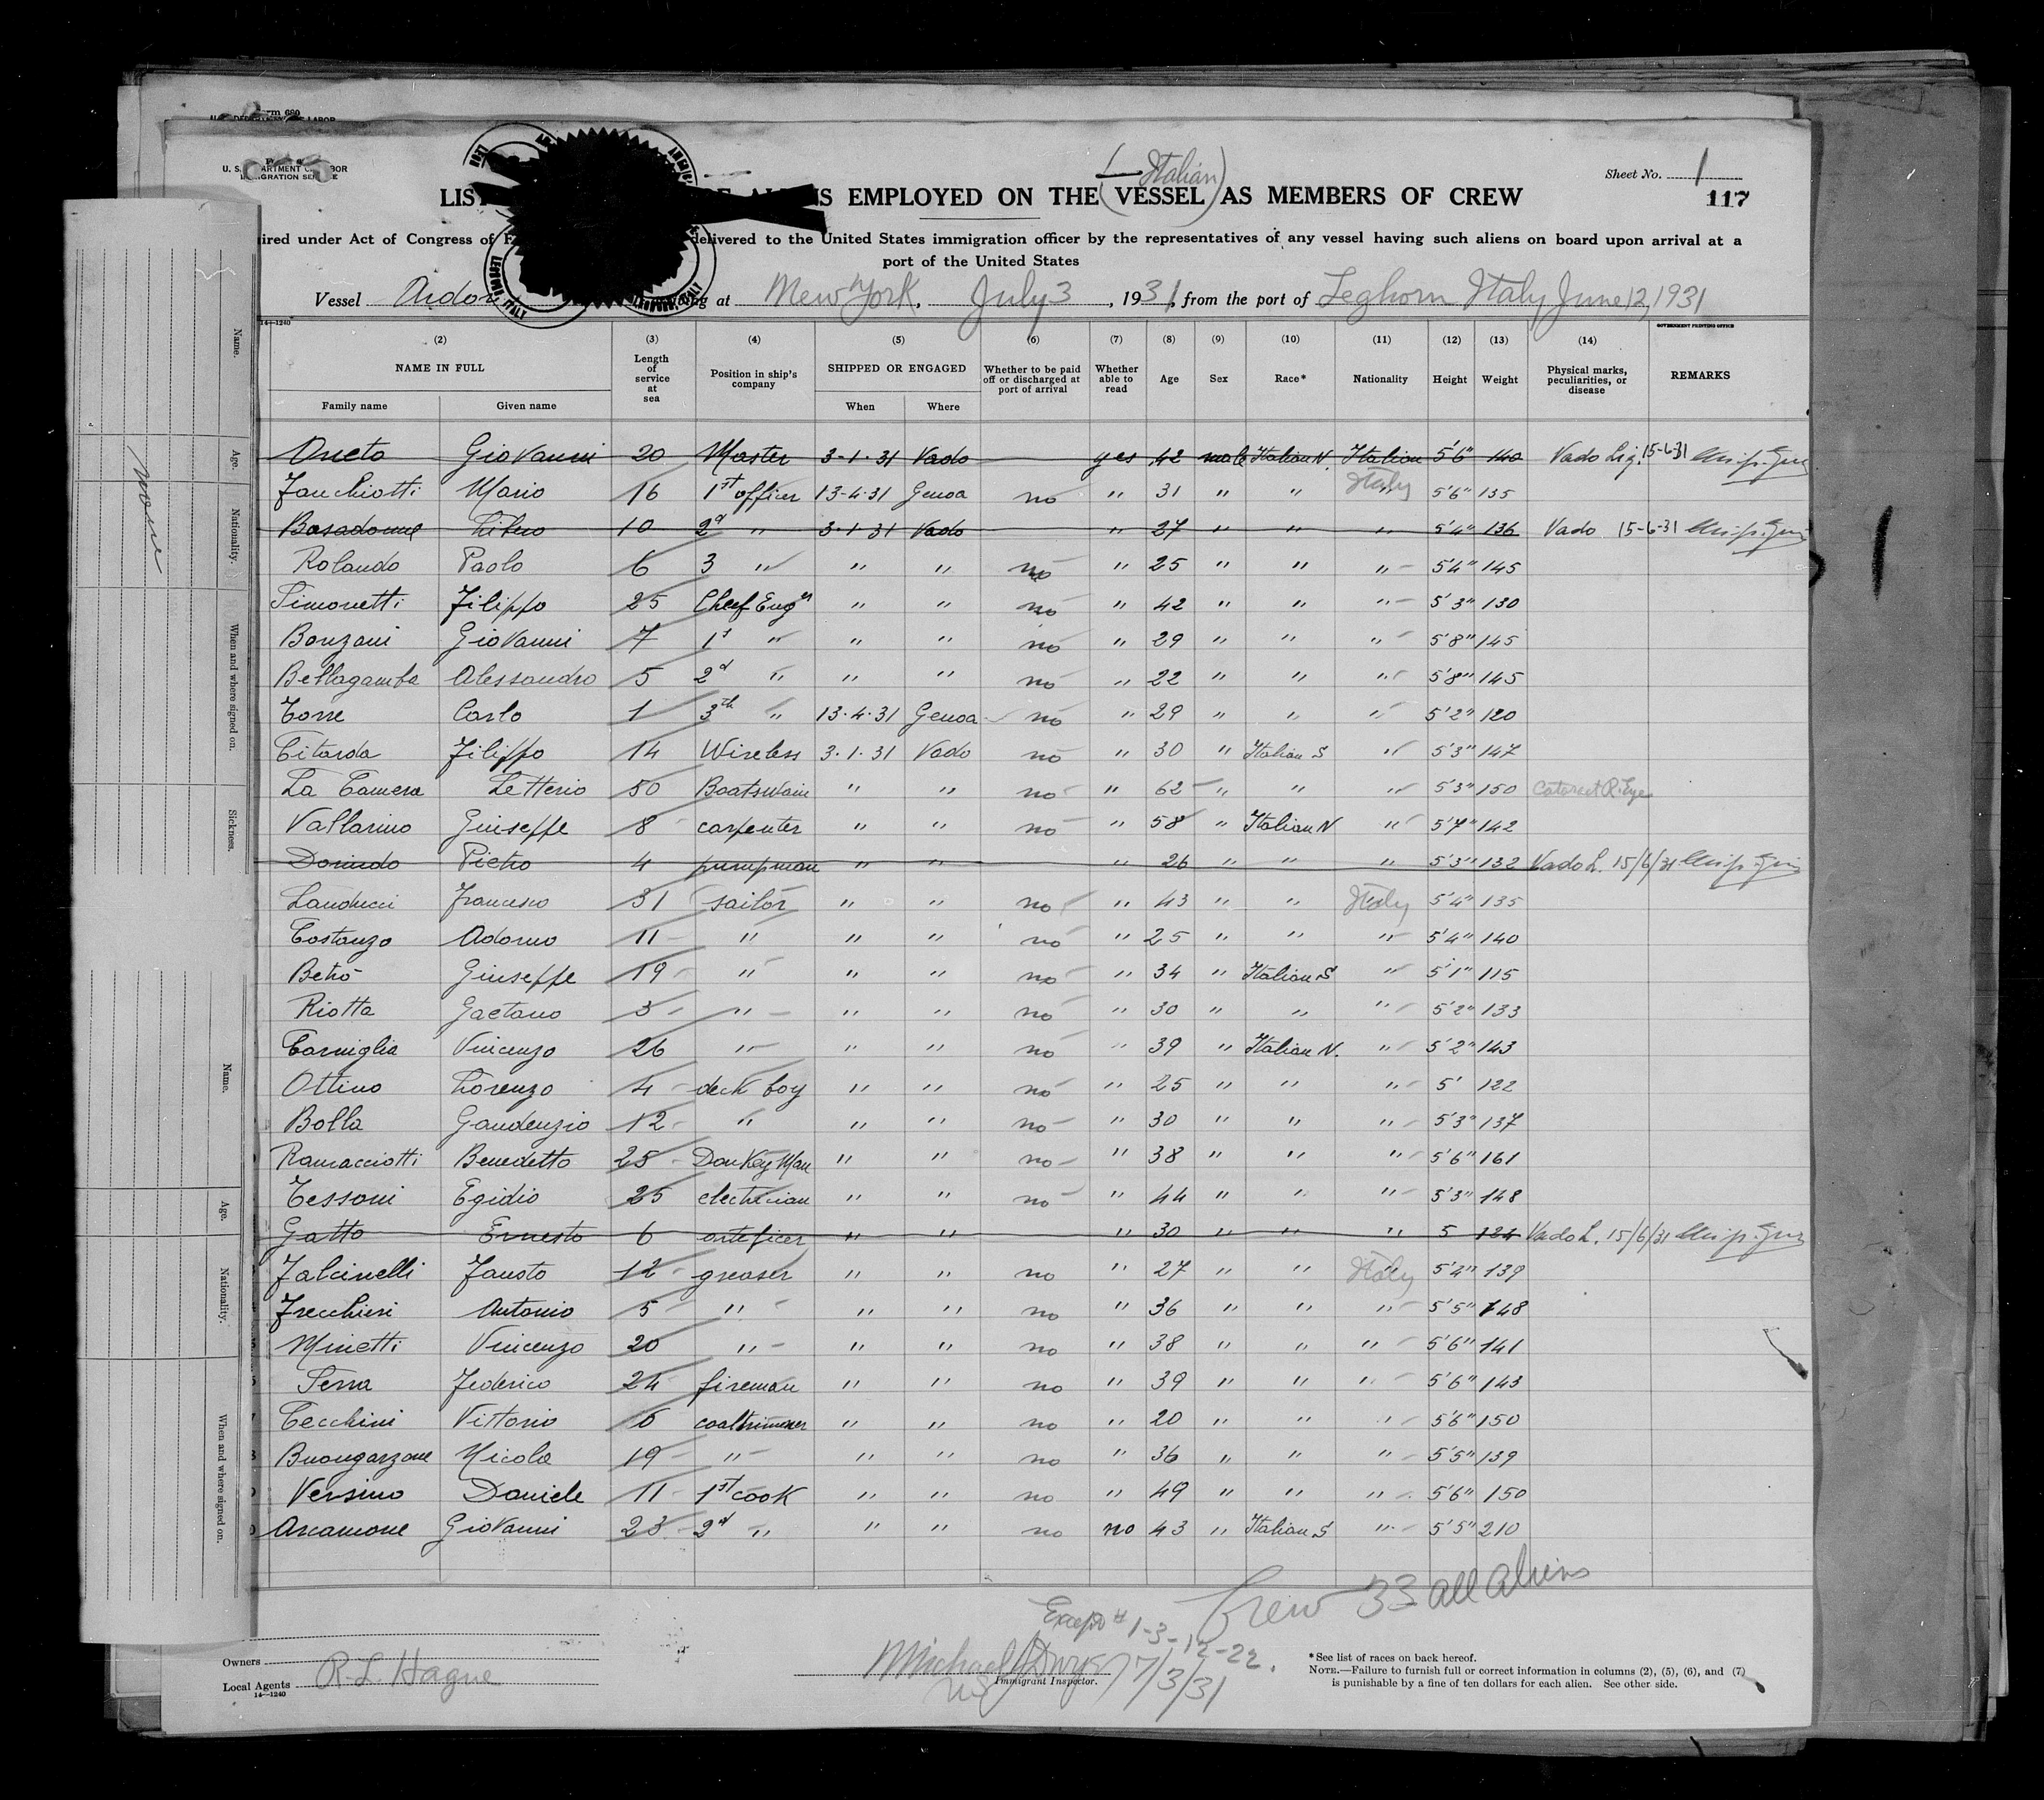 Form 689
U. S. DEPARTMENT OF LABOR
U. S. DEPARTMENT OF LABOR
IMMIGRATION SERVICE
(Italian)
Sheet No. 1
LIST ALIENS EMPLOYED ON THE VESSEL AS MEMBERS OF CREW
117
ired under Act of Congress of delivered to the United States immigration officer by the representatives of any vessel having such aliens on board upon arrival at a
port of the United States
Vessel arriving at New York, July 3, 1931, from the port of Leghorn Italy June 12, 1931
14—1240
GOVERNMENT PRINTING OFFICE
(2) (3) (4) (5) (6) (7) (8) (9) (10) (11) (12) (13) (14)
NAME IN FULL Length of service at sea Position in ship's company SHIPPED OR ENGAGED Whether to be paid off or discharged at port of arrival Whether able to read Age Sex Race* Nationality Height Weight Physical marks, peculiarities, or disease REMARKS
Family name Given name When Where
Oneto Giovanni 20 Master 3-1-31 Vado yes 42 male Italian N. Italian 5'6" 140 Vado Lig. 15-6-31
Zanchiotti Mario 16 1st officer 13-4-31 Genoa no " 31 " " Italy 5'6" 135
Basadonne 10 2d " 3-1-31 Vado " 27 " " " 5'4" 136 Vado 15-6-31
Rolando Paolo 6 3 " " " no " 25 " " " 5'4" 145
Simonetti Filippo 25 Cheef Engr " " no " 42 " " " 5'3" 130
Bonzani Giovanni 7 1st " " " no " 29 " " " 5'8" 145
Bellagamba Alessandro 5 2d " " " no " 22 " " " 5'8" 145
Torre Carlo 1 3th " 13-4-31 Genoa no " 29 " " " 5'2" 120
Citarda Filippo 14 Wireless 3-1-31 Vado no " 30 " Italian S " 5'3" 147
La Camera Letterio 50 Boatswain " " no " 62 " " " 5'3" 150 Cataract R. Eye
Vallarino Giuseppe 8 carpenter " " no " 58 " Italian N " 5'7" 142
Dorindo Pietro 4 pumpman " " " 26 " " " 5'3" 132 Vado L. 15/6/31
Landucci Francesco 31 sailor " " no " 43 " " Italy 5'4" 135
Costanzo Adorno 11 " " " no " 25 " " " 5'4" 140
Betrò Giuseppe 19 " " " no " 34 " Italian S " 5'1" 115
Riotta Gaetano 3 " " " no " 30 " " " 5'2" 133
Carniglia Vincenzo 26 " " " no " 39 " Italian N. " 5'2" 143
Ottino Lorenzo 4 deck boy " " no " 25 " " " 5' 122
Bolla Gaudenzio 12 " " " no " 30 " " " 5'3" 137
Ramacciotti Benedetto 25 Donkey Man " " no " 38 " " " 5'6" 161
Tessoni Egidio 25 electrician " " no " 44 " " " 5'3" 148
Gatto Ernesto 6 arteficer " " " 30 " " " 5 124 Vado L. 15/6/31
Falcinelli Fausto 12 greaser " " no " 27 " " Italy 5'4" 139
Frecchieri Antonio 5 " " " no " 36 " " " 5'5" 148
Minetti Vincenzo 20 " " " no " 38 " " " 5'6" 141
Serra Federico 24 fireman " " no " 39 " " " 5'6" 143
Cecchini Vittorio 6 coaltrimmer " " no " 20 " " " 5'6" 150
Buongarzone Nicola 19 " " " no " 36 " " " 5'5" 139
Versino Daniele 11 1st cook " " no " 49 " " " 5'6" 150
Ascamone Giovanni 23 2d " " " no no 43 " Italian S " 5'5" 210
Crew 33 all aliens
Except # 1-3-12-22.
Owners
Local Agents R. L. Hague
14—1240
Michael 7/3/31
Immigrant Inspector.
*See list of races on back hereof.
NOTE.—Failure to furnish full or correct information in columns (2), (5), (6), and (7)
is punishable by a fine of ten dollars for each alien. See other side.
Name.
Age.
Nationality.
When and where signed on.
Sickness.
none
Name.
Age.
Nationality.
When and where signed on.
1